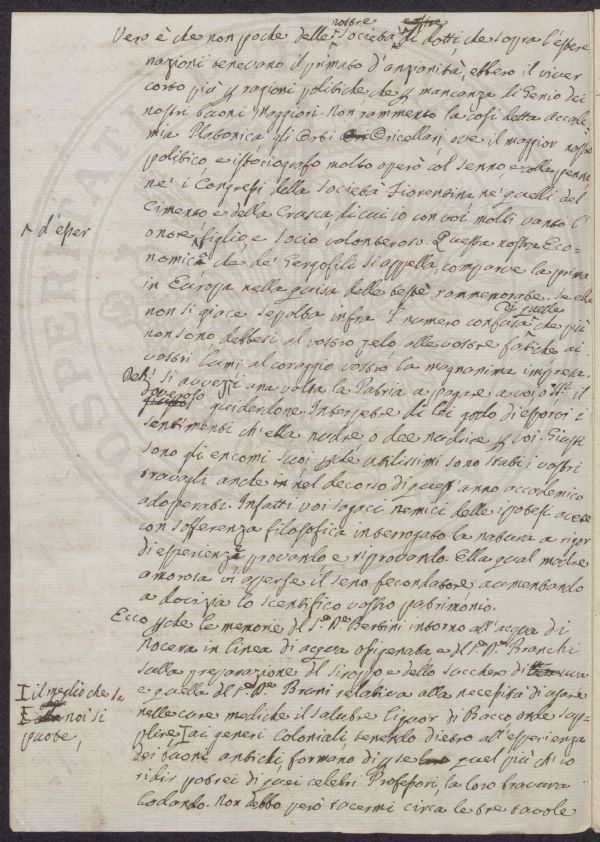 Vero è che non poche delle nostre Società di dotti, che sopra l'estere
nazioni tenevano il primato d'anzianità, ebbero il viver
corto più p ragioni politiche che p mancanza di Genio dei
nostri buoni Maggiori. Non rammento la così detta Accade
mia Platonica gli Orti Oricellari, ove il maggior nostro
politico e isteriografo molto operò col senno, e colla penna
né i Congressi della Società Fiorentina né quelli del
Cimento e della Crusca, di cui io con voi molti vanto l'
^ d'esser
onore ^ figlio, e socio volonteroso. Questa nostra Eco-
nomica che de' Gergofili si appella, comparve la prima
in Europa nella guisa delle testè rammemorate. Se ella
non si giace sepolta infra l'numero confuso di quelle che più
non sono debbesi al vostro zelo alle vostre fatiche ai
vostri lumi al coraggio vostro la magnanima impresa.
Deh! si avvezzi una volta la Patria a pagare a voi il
doveroso guiderdone. Interpetre di lei godo di esporvi i
sentimenti ch'ella nudre o dee nudrire p voi. Giusti
sono gli encomi suoi pchè utilissimi sono stati i vostri
travagli anche nel decorso di quest'anno accademico
adoperati. Infatti voi sagaci nemici delle ipotesi avete
con sofferenza filosofica interrogato la natura a rigor
di esperienza provando e riprovando. Ella qual madre
amorosa vi aperse il seno fecondatore aumentando
a dovizia lo scentifico vostro patrimonio.
Ecco pchè le memorie del S.e D.e Bertini intorno all'acqua di
Nocera in linea di acqua ossigenata e del S.e D.e Branchi
sulla preparazione del siroppo e dello zucchero di uva
e quella del S.e D.e Bruni relativa alla necessità di usare
nelle cure mediche il salubre liquor di Bacco onde sup-
I il meglio che da
noi si
puote,
plire I ai generi Coloniali, tenendo dietro all'esperienza
dei buoni antichi formano di p se quel più ch'io
ridir potrei di quei celebri Professori, la loro bravura
lodando. Non debbo però tacermi circa le tre tavole